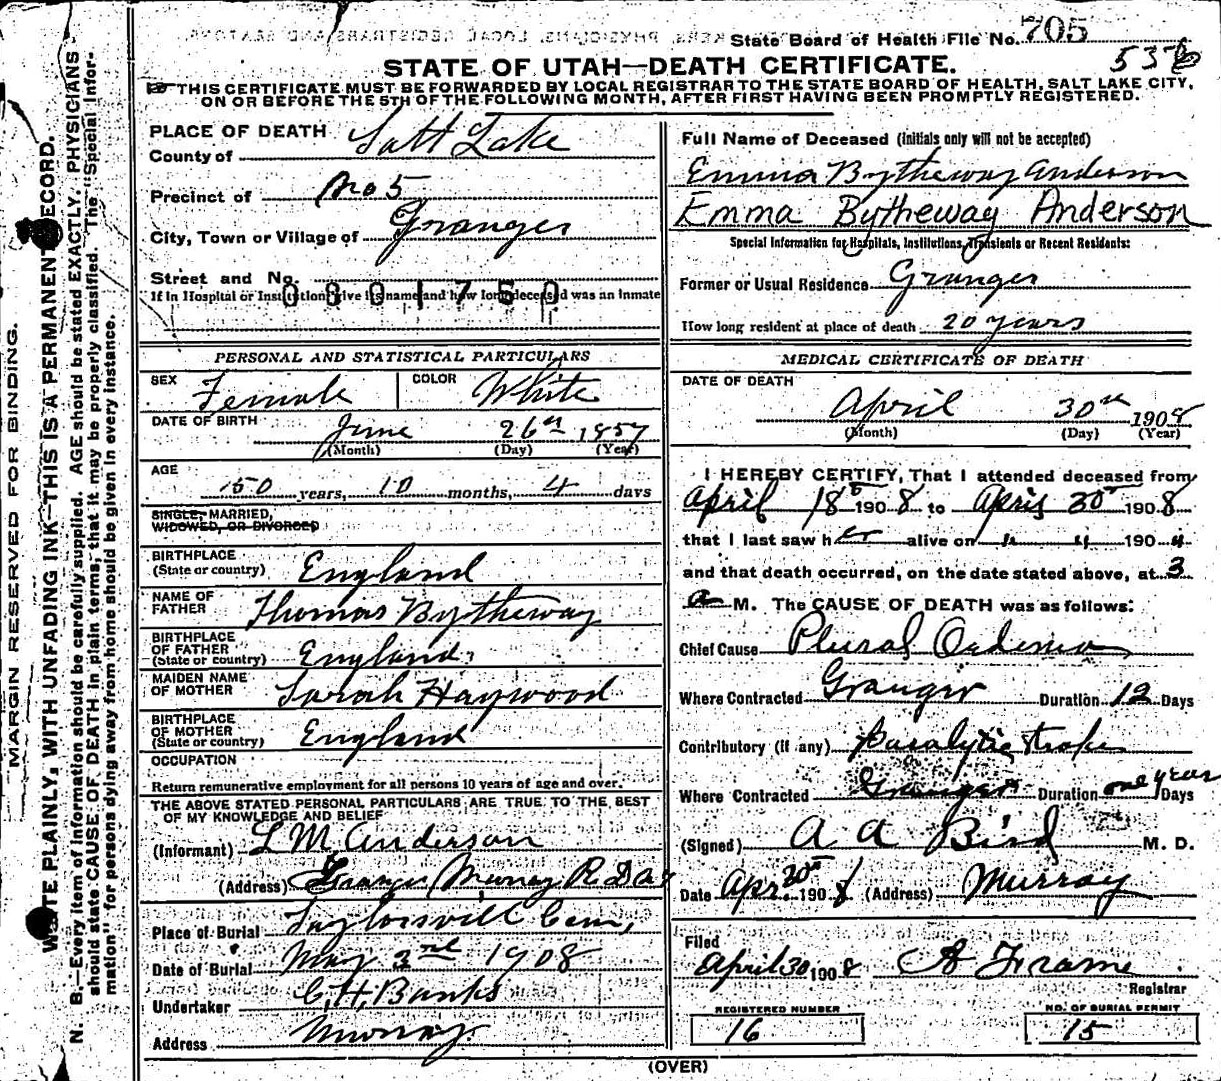 State Board of Health File No. 705
STATE OF UTAH—DEATH CERTIFICATE.
THIS CERTIFICATE MUST BE FORWARDED BY LOCAL REGISTRAR TO THE STATE BOARD OF HEALTH, SALT LAKE CITY,
ON OR BEFORE THE 5TH OF THE FOLLOWING MONTH, AFTER FIRST HAVING BEEN PROMPTLY REGISTERED.
MARGIN RESERVED FOR BINDING.
WRITE PLAINLY, WITH UNFADING INK—THIS IS A PERMANENT RECORD.
N. B.—Every item of information should be carefully supplied. AGE should be stated EXACTLY. PHYSICIANS
should state CAUSE OF DEATH in plain terms, that it may be properly classified. The "Special Infor-
mation" for persons dying away from home should be given in every instance.
PLACE OF DEATH
County of Salt Lake
Precinct of No 5
City, Town or Village of Granger
Street and No.
0801750
If in Hospital or Institution give its name and how long deceased was an inmate
PERSONAL AND STATISTICAL PARTICULARS
SEX Female COLOR White
DATE OF BIRTH June 26th 1857
(Month) (Day) (Year)
AGE
50 years, 10 months, 4 days
SINGLE, MARRIED,
WIDOWED, OR DIVORCED
BIRTHPLACE
(State or country) England
NAME OF
FATHER Thomas Bytheway
BIRTHPLACE
OF FATHER
(State or country) England
MAIDEN NAME
OF MOTHER Sarah Haywood
BIRTHPLACE
OF MOTHER
(State or country) England
OCCUPATION
Return remunerative employment for all persons 10 years of age and over.
THE ABOVE STATED PERSONAL PARTICULARS ARE TRUE TO THE BEST
OF MY KNOWLEDGE AND BELIEF
(Informant) L M Anderson
(Address) Granger Murray R D
Place of Burial Taylorsvill Cem,
Date of Burial May 2nd 1908
Undertaker C. H. Banks
Address Murray
Full Name of Deceased (Initials only will not be accepted)
Emma Bytheway Anderson
Emma Bytheway Anderson
Special Information for Hospitals, Institutions, Transients or Recent Residents:
Former or Usual Residence Granger
How long resident at place of death 20 years
MEDICAL CERTIFICATE OF DEATH
DATE OF DEATH
April 30th 1908
(Month) (Day) (Year)
I HEREBY CERTIFY, That I attended deceased from
April 18th 1908 to April 30th 1908
that I last saw her alive on " " 190 "
and that death occurred, on the date stated above, at 3
a M. The CAUSE OF DEATH was as follows:
Chief Cause Plural Oedema
Where Contracted Granger Duration 12 Days
Contributory (if any) Paralytic stroke
Where Contracted Granger Duration one year Days
(Signed) A A Bird M. D.
Date Apr 30th 1908 (Address) Murray
Filed
April 30 1908 A Frame
Registrar
REGISTERED NUMBER
16
NO. OF BURIAL PERMIT
15
(OVER)